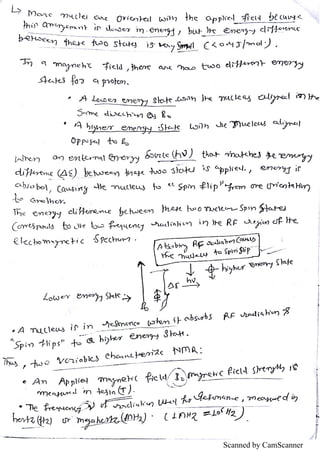 ↳ More nuclei are oriented with the applied field because
this arrangement is lower in energy, but the energy difference
between these two states is very small (<0.4 J/mol).
In a magnetic field, there are now two different energy
states for a proton.
• A Lower energy state with the nucleus aligned in the
same direction as B₀
• A higher energy state with the nucleus aligned
opposed to B₀
When an external energy source (hν) that matches the energy
difference (ΔE) between these two states is applied, energy is
absorbed, causing the nucleus to "spin flip" from one orientation
to another.
The energy difference between these two nuclear spin states
corresponds to the low frequency radiation in the RF region of the
electromagnetic spectrum.
Absorbing RF radiation causes
the nucleus to spin flip
higher energy state
hν
ΔE
Lower energy state →
B₀
• A nucleus is in resonance when it absorbs RF radiation &
"spin flips" to a higher energy state.
Thus, two variables characterize NMR:
• An Applied magnetic field magnetic field strength is
measured in tesla (T).
• The frequency ν of radiation used for resonance, measured in
hertz (Hz) or megahertz (MHz). (1 MHz = 10⁶ Hz)
Scanned by CamScanner